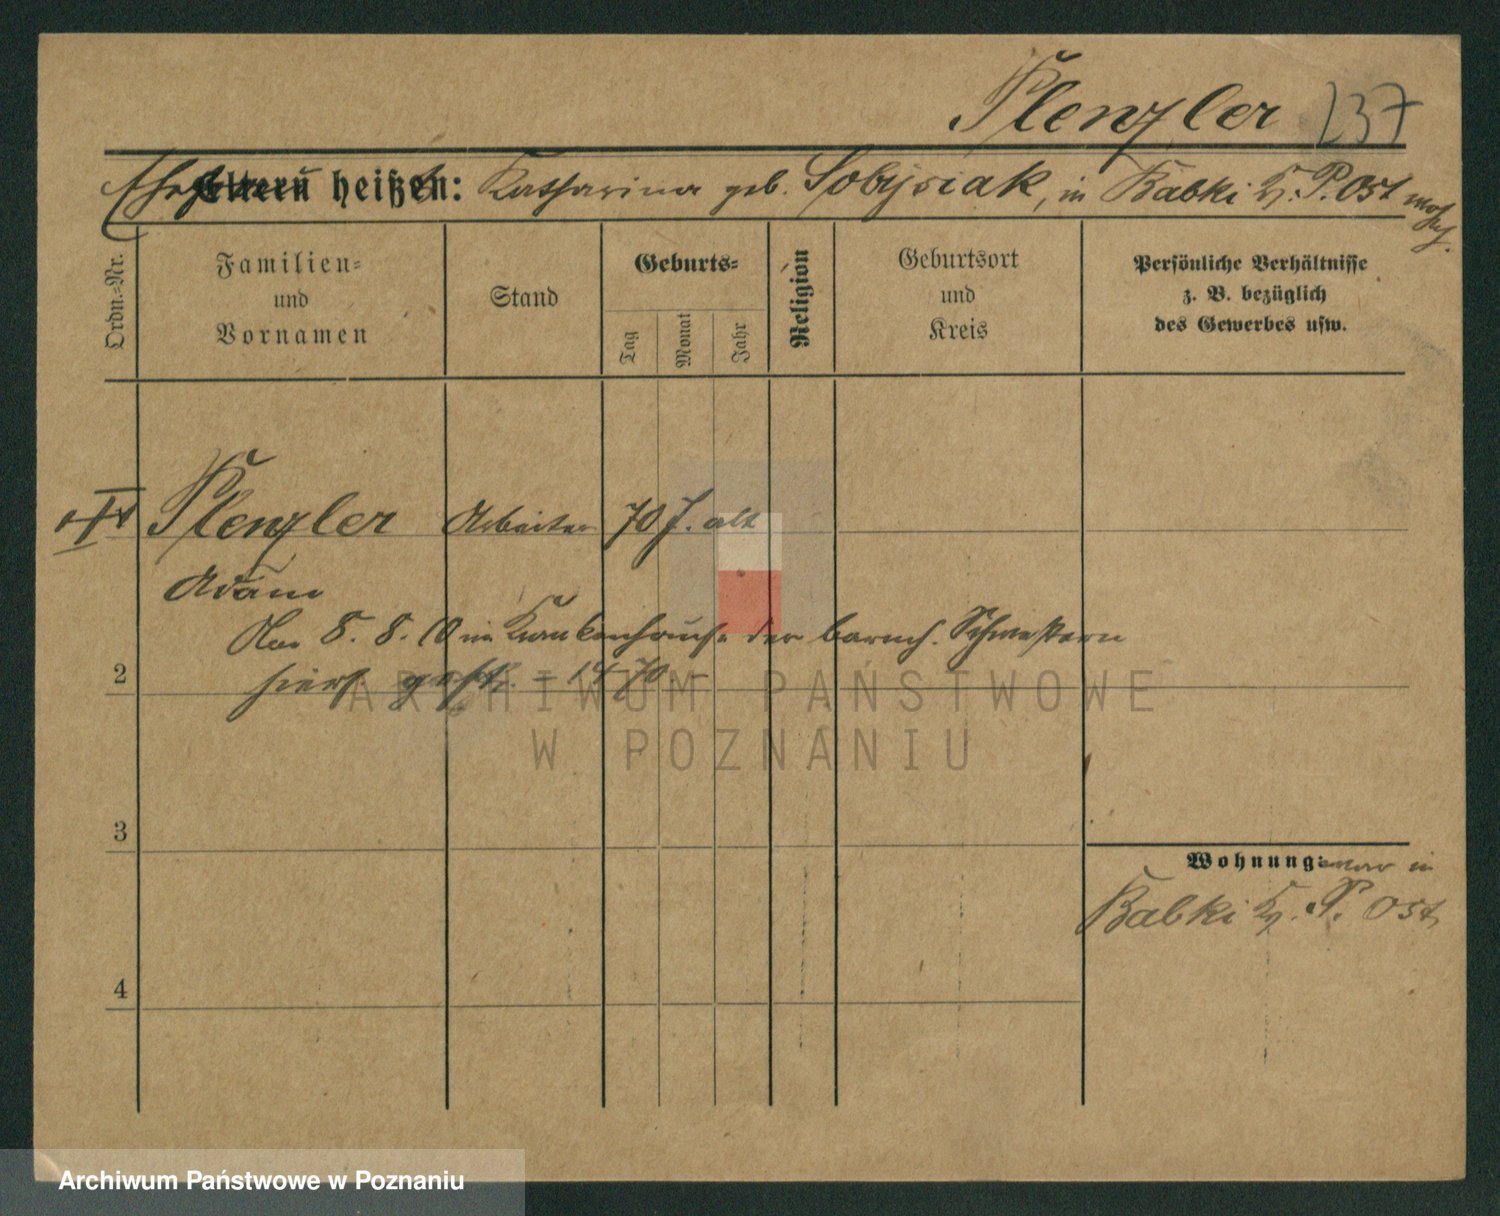 Plenzler 237
Ehefrau Eltern heißen: Katharina geb. Sobysiak, in Babki K. P. Ost wohnh.
Ordn.=Nr.
Familien=
und
Vornamen
Stand
Geburts=
Tag
Monat
Jahr
Religion
Geburtsort
und
Kreis
Persönliche Verhältnisse
z. B. bezüglich
des Gewerbes usw.
Plenzler Arbeiter 70 J. alt
Adam
Am 8. 8. 10 im Krankenhause der barmh. Schwestern
2 hiers. gestb. - 1470 -
ARCHIWUM PAŃSTWOWE
W POZNANIU
3
Wohnung: war in
Babki K. P. Ost
4
Archiwum Państwowe w Poznaniu